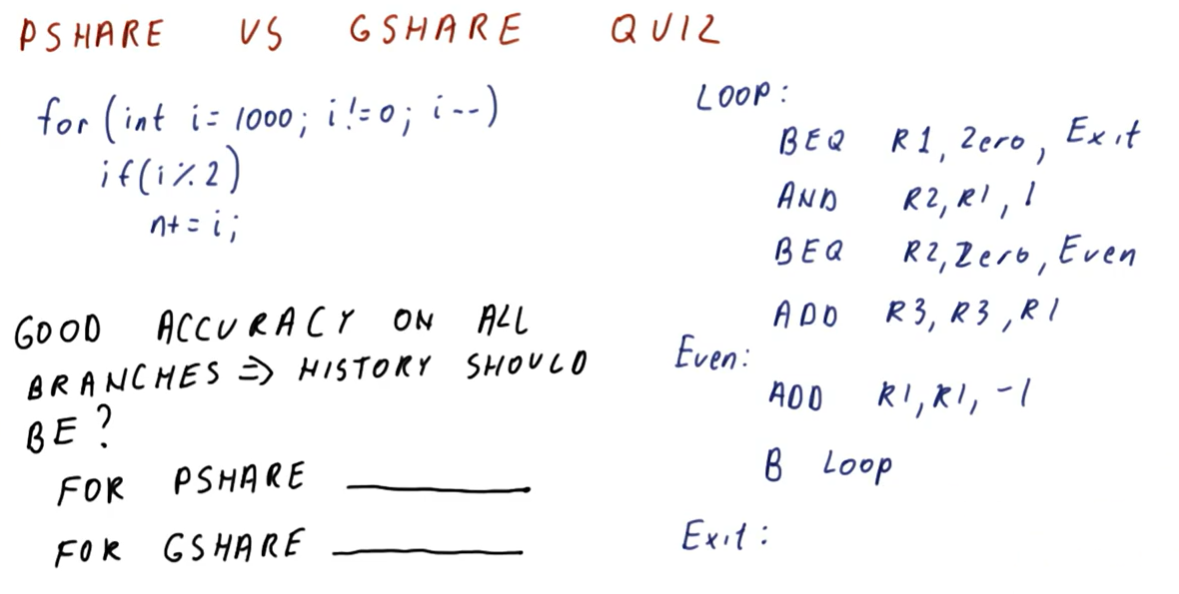 PSHARE VS GSHARE QUIZ
for (int i = 1000; i != 0; i--)
if(i%2)
n+= i;
GOOD ACCURACY ON ALL
BRANCHES => HISTORY SHOULD
BE?
FOR PSHARE
FOR GSHARE
LOOP:
BEQ R1, Zero, Exit
AND R2, R1, 1
BEQ R2, Zero, Even
ADD R3, R3, R1
Even:
ADD R1, R1, -1
B Loop
Exit: